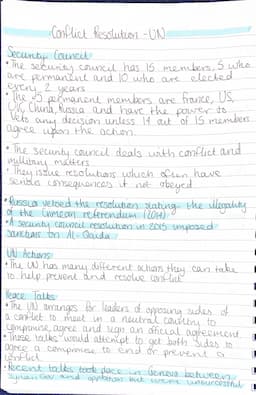 Conflict Resolution - UN
Security Council
• The security council has 15 members. 5 who
are permanent and 10 who are elected
every 2 years
• The 5 permanent members are France, US,
UK, China, Russia and have the power to
veto any decision unless 14 out of 15 members
agree upon the action.
• The security council deals with conflict and
military matters
• They issue resolutions which often have
serious consequences if not obeyed
• Russia vetoed the resolution stating the illegality
of the Crimean referendum (2014)
• A security council resolution in 2015 imposed
sanctions on Al-Qaida
UN Actions
• The UN has many different actions they can take
to help prevent and resolve conflict
Peace Talks
• The UN arranges for leaders of opposing sides of
a conflict to meet in a neutral country to
compromise, agree and sign an official agreement
• These talks would attempt to get both sides to
agree a compromise to end or prevent a
conflict
• Recent talks took place in Geneva between
Syrian Gov and opposition but were unsuccessful